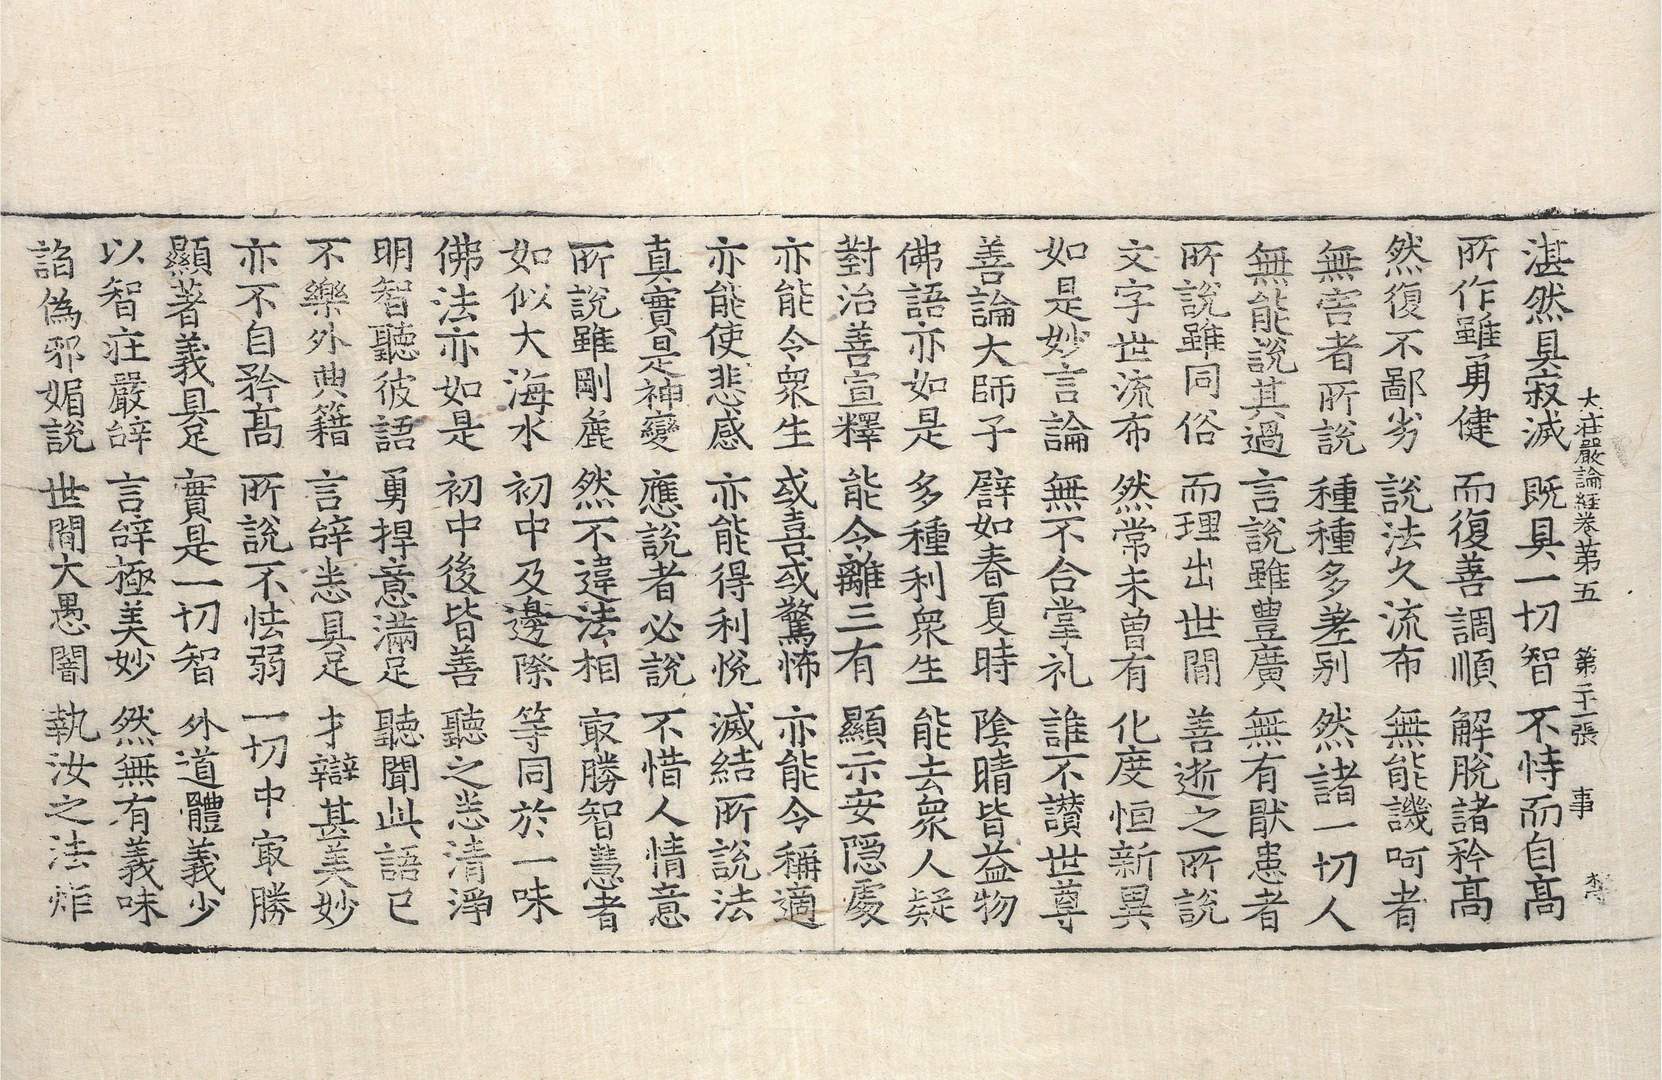 大莊嚴論經卷第五 第二十一張 事
湛然具寂滅 既具一切智 不恃而自高
所作雖勇健 而復善調順 解脫諸矜高
然復不鄙劣 說法久流布 無能譏呵者
無害者所說 種種多差别 然諸一切人
無能說其過 言說雖豊廣 無有猒患者
所說雖同俗 而理出世間 善逝之所說
文字世流布 然常未曾有 化度恒新異
如是妙言論 無不合掌礼 誰不讃世尊
善論大師子 譬如春夏時 陰晴皆益物
佛語亦如是 多種利衆生 能去衆人疑
對治善宣釋 能令離三有 顯示安隱處
亦能令衆生 或喜或驚怖 亦能令稱適
亦能使悲感 亦能得利悅 滅結所說法
真實是神變 應說者必說 不惜人情意
所說雖剛麁 然不違法相 㝡勝智慧者
如似大海水 初中及邊際 等同於一味
佛法亦如是 初中後皆善 聽之悉清淨
明智聽彼語 勇捍意滿足 聽聞此語已
不樂外典籍 言辝悉具足 才辯甚美妙
亦不自矜高 所說不怯弱 一切中㝡勝
顯著義具足 實是一切智 外道體義少
以智莊嚴辝 言辝極美妙 然無有義味
諂偽邪媚說 世間大愚闇 執汝之法炬